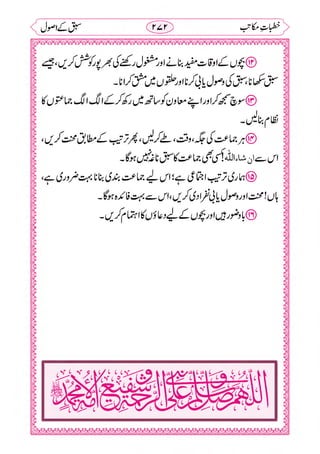 خطباتِ مکاتب ۲۷۲ سبق کے اصول
⑫ بچوں کے اوقات مفید بنانے اور مشغول رکھنے کی بھرپور کوشش کریں، جیسے،
سبق سکھانا، سبق کی وصولیابی کرنا اور حلقوں میں مشق کرانا۔
⑬ سوچ سمجھ کر اور اپنے معاون کو ساتھ میں رکھ کر کے الگ الگ جماعتوں کا
نظام بنالیں۔
⑭ ہر جماعت کی جگہ، وقت، طے کر لیں، پھر ترتیب کے مطابق محنت کریں،
اس سے ان شاء اللہ کسی بھی جماعت کا سبق ناغہ نہیں ہوگا۔
⑮ ہماری ترتیب اجتماعی ہے؛ اس لیے جماعت بندی بنانا بہت ضروری ہے،
ہاں! محنت اور وصولیابی انفرادی کریں، اس سے بہت فائدہ ہوگا۔
⑯ باوضو رہیں اور بچوں کے لیے دعاؤں کا اہتمام کریں۔